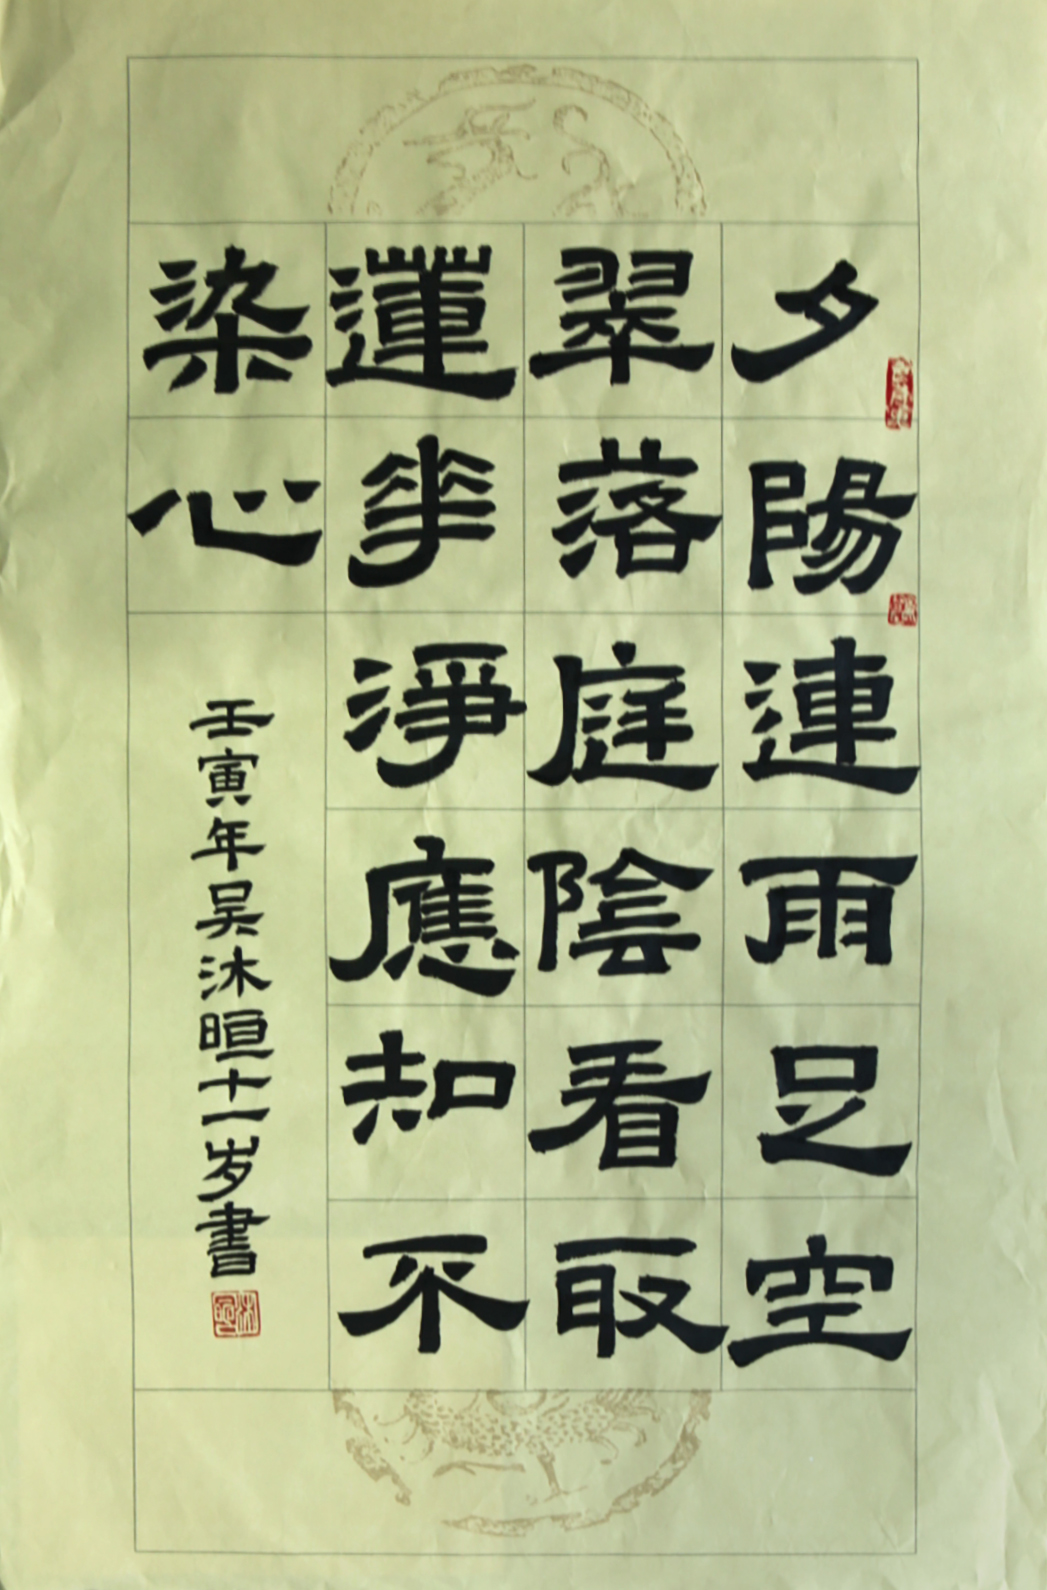 夕陽連雨足空
翠落庭陰看取
蓮華淨應知不
染心
壬寅年吴沐晅十一岁書